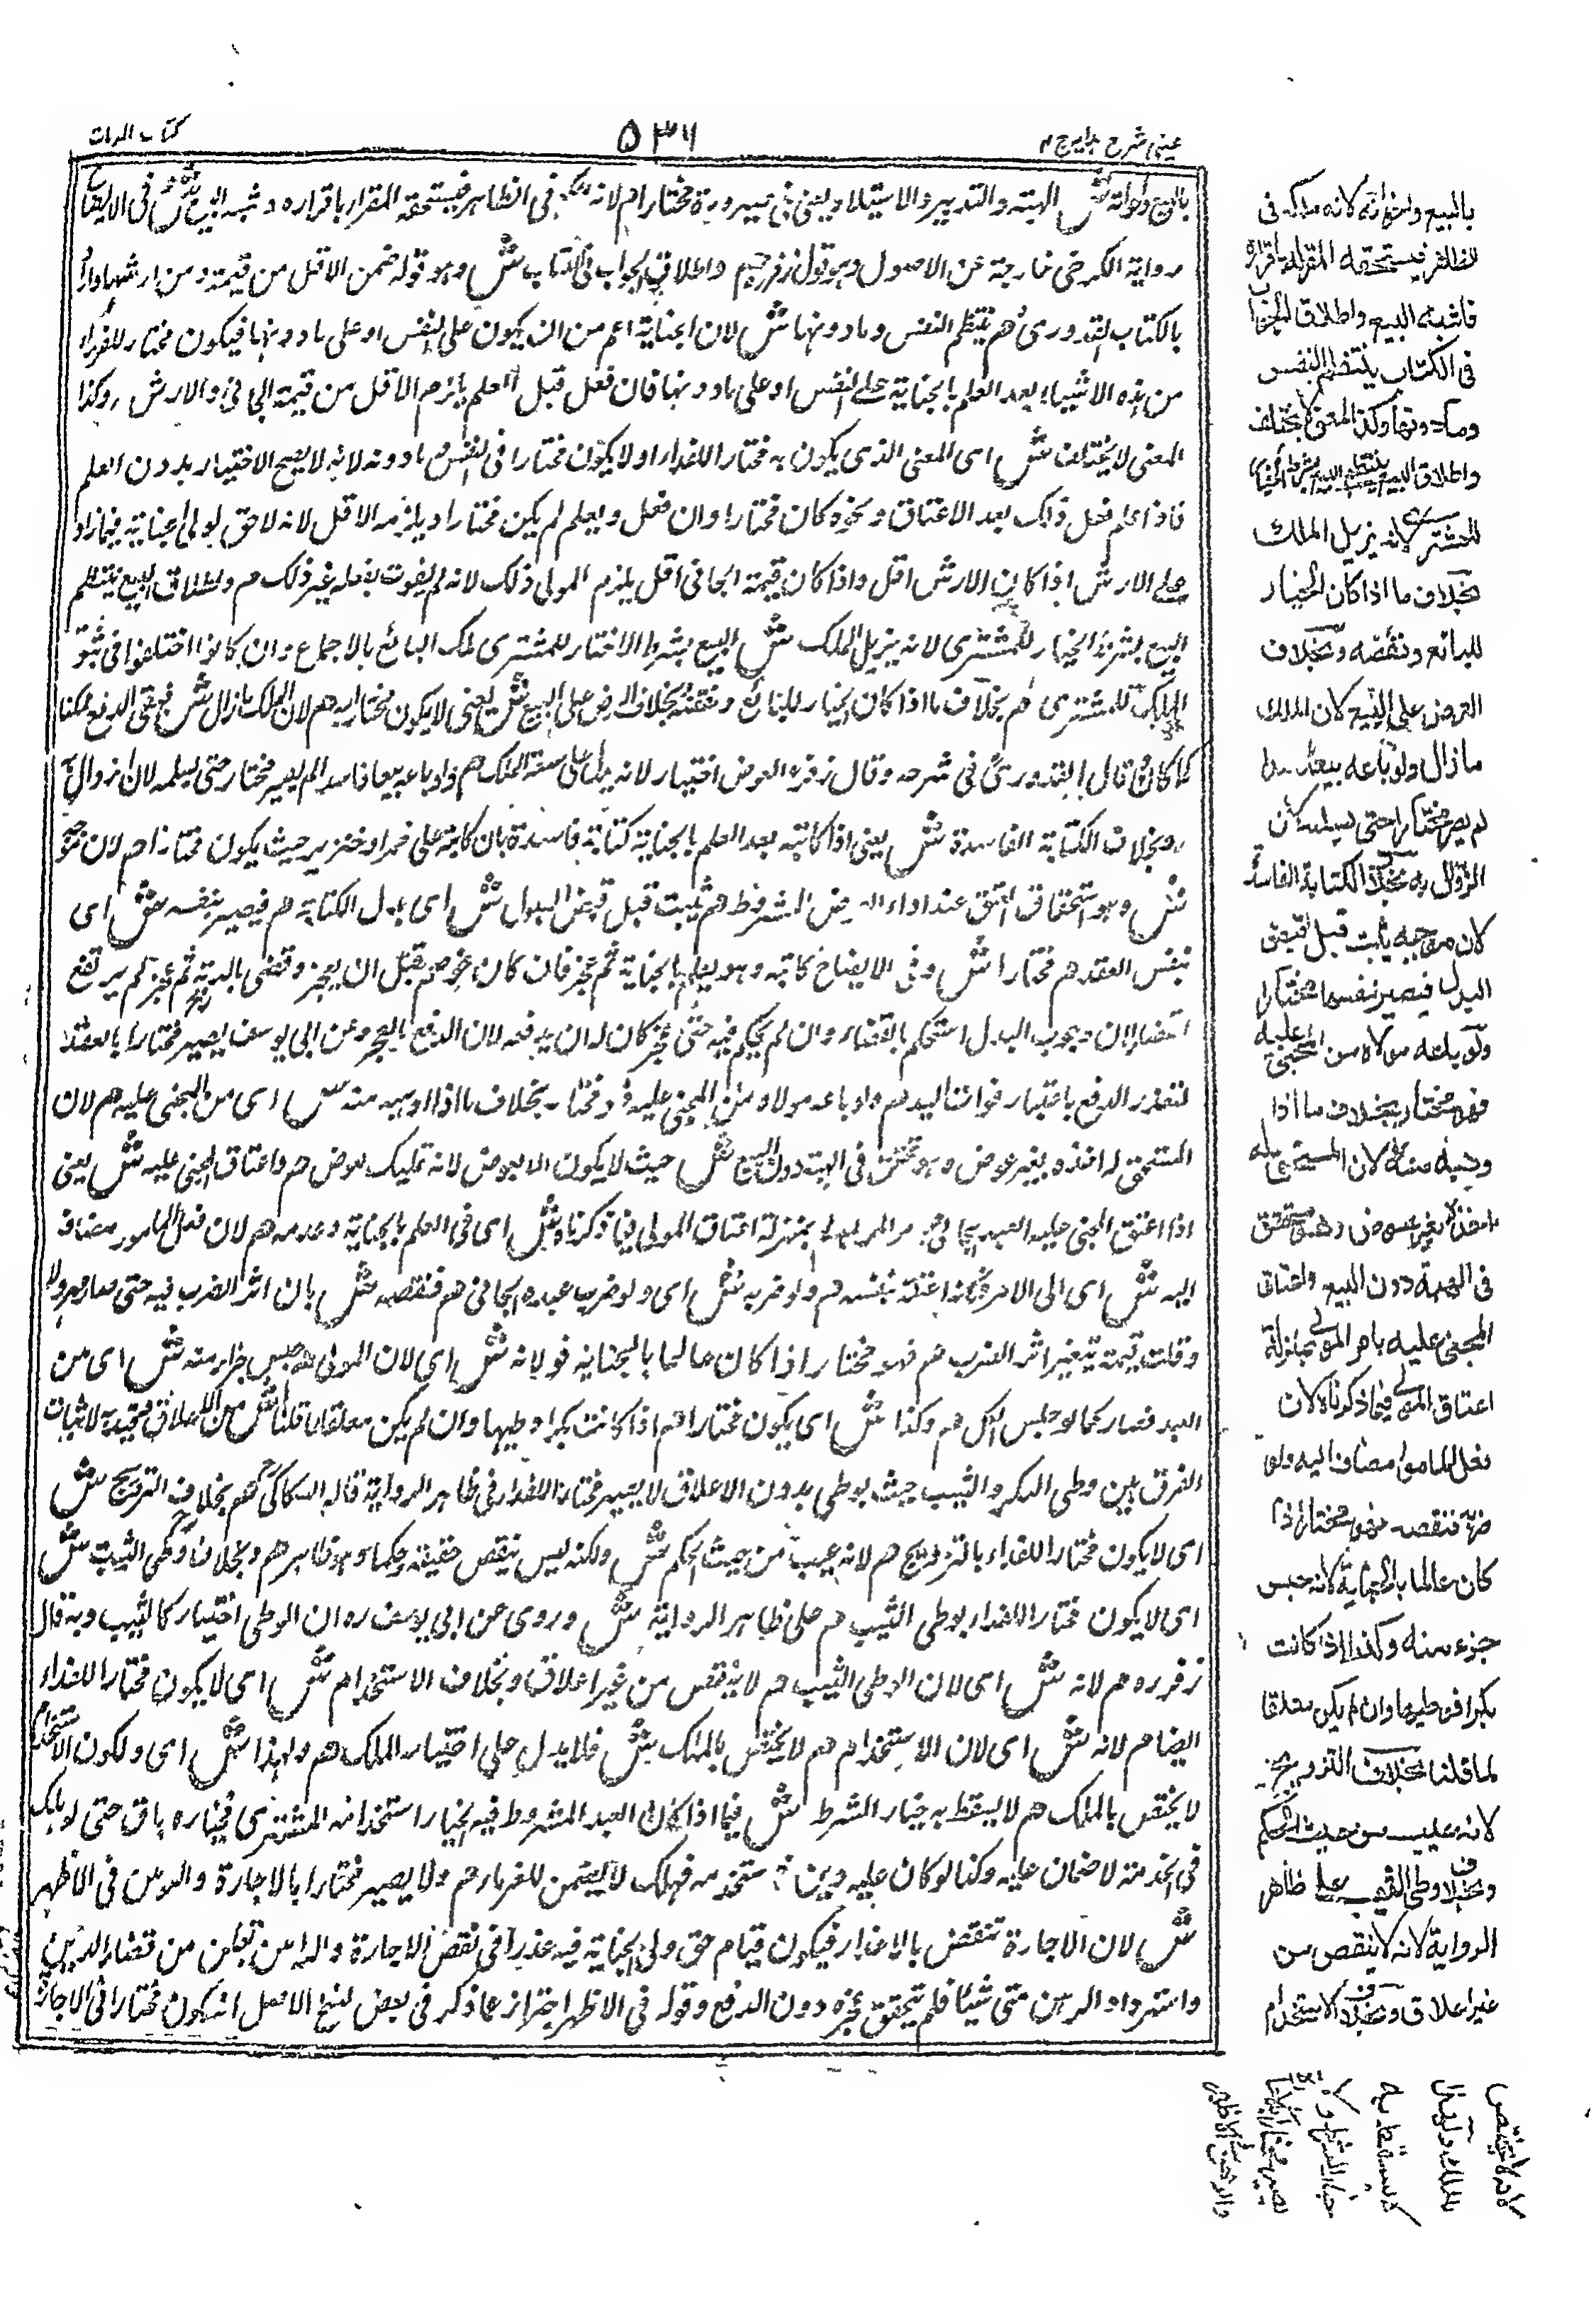 عینی شرح ہدایہ ج ۴
۵۳۶
کتاب الدیات
بالبیع واخواته ش الهبة والتدبیر والاستیلاد یعنی فی صیرورته مختارا م لانه ملکه فی الظاهر فیستحقه المقر له باقراره فاشبه البیع ش وفی الایضاح
رواية الكرخی خارجة عن الاصول وهو قول زفر رحمه م واطلاق الجواب فی الکتاب ش وهو قوله ضمن الاقل من قیمته ومن ارشها واراد
بالکتاب القدوری م ینتظم النفس وما دونها ش لان الجنایة اعم من ان یکون علی النفس او علی ما دونها فیکون مختارا للفداء
من هذه الاشیاء بعد العلم بالجنایة علی النفس او علی ما دونها فان فعل قبل العلم یلزم الاقل من قیمة الجانی والارش م وکذا
المعنی لا یختلف ش ای المعنی الذی یکون به مختارا للفداء او لا یکون مختارا فی النفس وما دونه لانه لا یصح الاختیار بدون العلم
فاذا علم فعل ذلک بعد الاعتاق ونحوه کان مختارا وان فعل ولم یعلم لم یکن مختارا ویلزمه الاقل لانه لا حق لولی الجنایة فیما زاد
علی الارش اذا کان الارش اقل واذا کان قیمة الجانی اقل یلزم المولی ذلک لانه لم یفوت بفعله غیر ذلک م واطلاق البیع ینتظم
البیع بشرط الخیار للمشتری لانه یزیل الملک ش البیع بشرط الاختیار للمشتری ملک البائع بالاجماع وان کانوا اختلفوا فی ثبوت
الملک للمشتری م بخلاف ما اذا کان الخیار للبائع ونقضه وبخلاف العرض علی البیع ش یعنی لا یکون مختارا به م لان الملک ما زال ش فبقی الدفع ممکنا
کما کان قال القدوری فی شرحه وقال زفر العرض اختیار لانه یدل علی سعة الملک م ولو باعه بیعا فاسدا لم یصر مختارا حتی یسلمه لان الزوال به
وبخلاف الکتابة الفاسدة ش یعنی اذا کاتبه بعد العلم بالجنایة کتابة فاسدة بان کاتبه علی خمر او خنزیر حیث یکون مختارا م لان موجبه
ش وهو استحقاق العتق عند اداء المشروط م یثبت قبل قبض البدل ش ای بدل الکتابة م فیصیر بنفسه ش ای
بنفس العقد م مختارا ش وفی الایضاح کاتبه وهو یعلم بالجنایة ثم عجز فان کان خوصم قبل ان یعجز وقضی بالدیة ثم عجز لم یرتفع
القضاء لان وجوب البدل استحکم بالقضاء وان لم یحکم فیه حتی عجز کان له ان یدفعه لان الدفع بالعجز وعن ابی یوسف یصیر مختارا بالعقد
لتعذر الدفع باعتبار فوات الید م ولو باعه مولاه من المجنی علیه فهو مختار بخلاف ما اذا وهبه منه ش ای من المجنی علیه م لان
المستحق له اخذه بغیر عوض وهو متحقق فی الهبة دون البیع ش حیث لا یکون الا بعوض لانه تملیک بعوض م واعتاق المجنی علیه ش یعنی
اذا اعتق المجنی علیه العبد الجانی م بامر المولی بمنزلة اعتاق المولی فیما ذکرناه ش ای فی العلم بالجنایة وعدمه م لان فعل المامور مضاف
الیه ش ای الی الامر فکانه اعتقه بنفسه م ولو ضربه ش ای ولو ضرب عبده الجانی م فنقصه ش بان اثر الضرب فیه حتی صار مهزولا
وقلت قیمته بتغیر اثر الضرب م فهو مختار اذا کان عالما بالجنایة م لانه ش ای لان المولی م حبس جزاء منه ش ای من
العبد فصار کما لو حبس الکل م وکذا ش ای یکون مختارا م اذا کانت بکرا وطیها وان لم یکن معلقا لما قلنا ش من الاعلاق قید به لاثبات
الفرق بین وطی البکر والثیب حیث بوطی بدون الاعلاق لا یصیر مختارا للفداء فی ظاهر الروایة قاله السکاکی م بخلاف التزویج ش
ای لا یکون مختارا للفداء بالتزویج م لانه عیب من حیث الحکم ش ولکنه لیس بنقص حقیقة وحکما وهو ظاهر م وبخلاف وطی الثیب ش
ای لا یکون مختارا للفداء بوطی الثیب م علی ظاهر الروایة ش وروی عن ابی یوسف ره ان الوطی اختیار کالثیب وبه قال
زفر ره م لانه ش ای لان الوطی الثیب م لا ینقص من غیر اعلاق وبخلاف الاستخدام ش ای لا یکون مختارا للفداء
ایضا م لانه ش ای لان الاستخدام م لا یختص بالملک ش فلا یدل علی اختیار الملک م ولهذا ش ای ولکون الاستخدام
لا یختص بالملک م لا یسقط به خیار الشرط ش فیما اذا کان العبد المشروط فیه الخیار استخدامه المشتری فخیاره باق حتی لو هلک
فی الخدمة لا ضمان علیه وکذا لو کان علیه دین فاستخدمه فهلک لا یضمن للغرماء م ولا یصیر مختارا بالاجارة والرهن فی الاظهر
ش لان الاجارة تنقض بالاعذار فیکون قیام حق ولی الجنایة فیه عذرا فی نقض الاجارة والراهن تمکن من قضاء الدین
واسترداد الرهن متی شاء فلم یتحقق عجزه دون الدفع وقوله فی الاظهر احتراز عما ذکر فی بعض نسخ الاصل انه یکون مختارا فی الاجارة
بالبیع واخواته لانه ملکه فی
الظاهر فیستحقه المقر له باقراره
فاشبه البیع واطلاق الجواب
فی الکتاب ینتظم النفس
وما دونها وکذا المعنی لا یختلف
واطلاق البیع ینتظم البیع بشرط الخیار
للمشتری لانه یزیل الملک
بخلاف ما اذا کان الخیار
للبائع ونقضه وبخلاف
العرض علی البیع لان الملک
ما زال ولو باعه بیعا فاسدا
لم یصر مختارا حتی یسلمه لان
الزوال به بخلاف الکتابة الفاسدة
لان موجبه یثبت قبل قبض
البدل فیصیر بنفسها مختارا
ولو باعه مولاه من المجنی علیه
فهو مختار بخلاف ما اذا
وهبه منه لان المستحق له
اخذه بغیر عوض وهو متحقق
فی الهبة دون البیع واعتاق
المجنی علیه بامر المولی بمنزلة
اعتاق المولی فیما ذکرناه لان
فعل المامور مضاف الیه ولو
ضربه فنقصه فهو مختار اذا
کان عالما بالجنایة لانه حبس
جزء منه وکذا اذا کانت
بکرا فوطیها وان لم یکن معلقا
لما قلنا بخلاف التزویج
لانه عیب من حیث الحکم
وبخلاف وطی الثیب علی ظاهر
الروایة لانه لا ینقص من
غیر اعلاق وبخلاف الاستخدام
لانه لا یختص
بالملک ولهذا
لا یسقط به
خیار الشرط ولا
یصیر مختارا بالاجارة
والرهن فی الاظهر